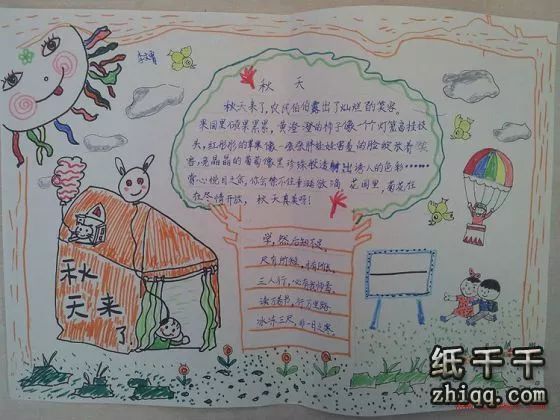 秋天
秋天来了,农民伯伯露出了灿烂的笑容。
果园里硕果累累,黄澄澄的柿子像一个个灯笼高挂枝
头,红彤彤的苹果像一张张胖娃娃害羞的脸绽放着笑
容,亮晶晶的葡萄像黑珍珠散透射出诱人的色彩……
赏心悦目之余,你会禁不住
花园里,菊花在
在尽情开放,秋天真美呀!
学,然后知不足
尺有所短,寸有所长
三人行,必有我师焉
读万卷书,行万里路
冰冻三尺,非一日之寒
秋
天来
了
纸千千
zhiqq.com